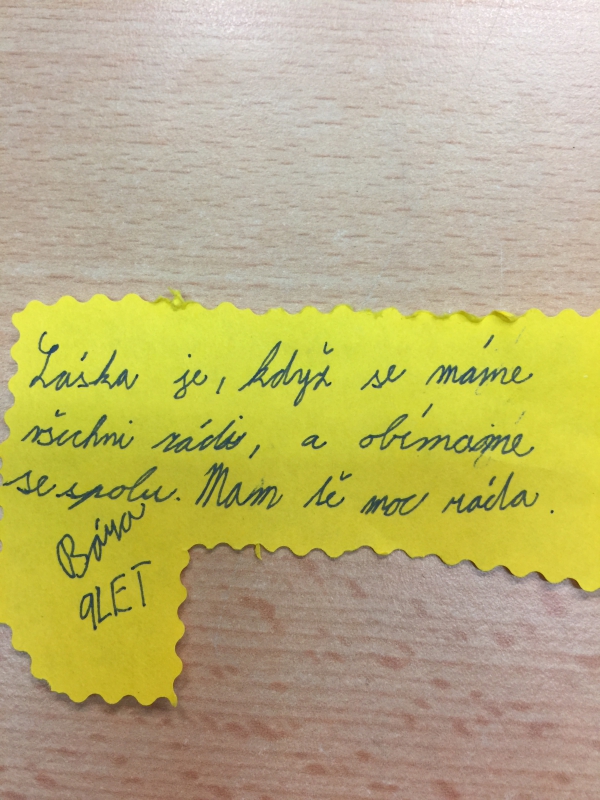 Láska je, když se máme
všichni rádi, a obímáme
se spolu. Mam tě moc ráda.
Bára
9LET